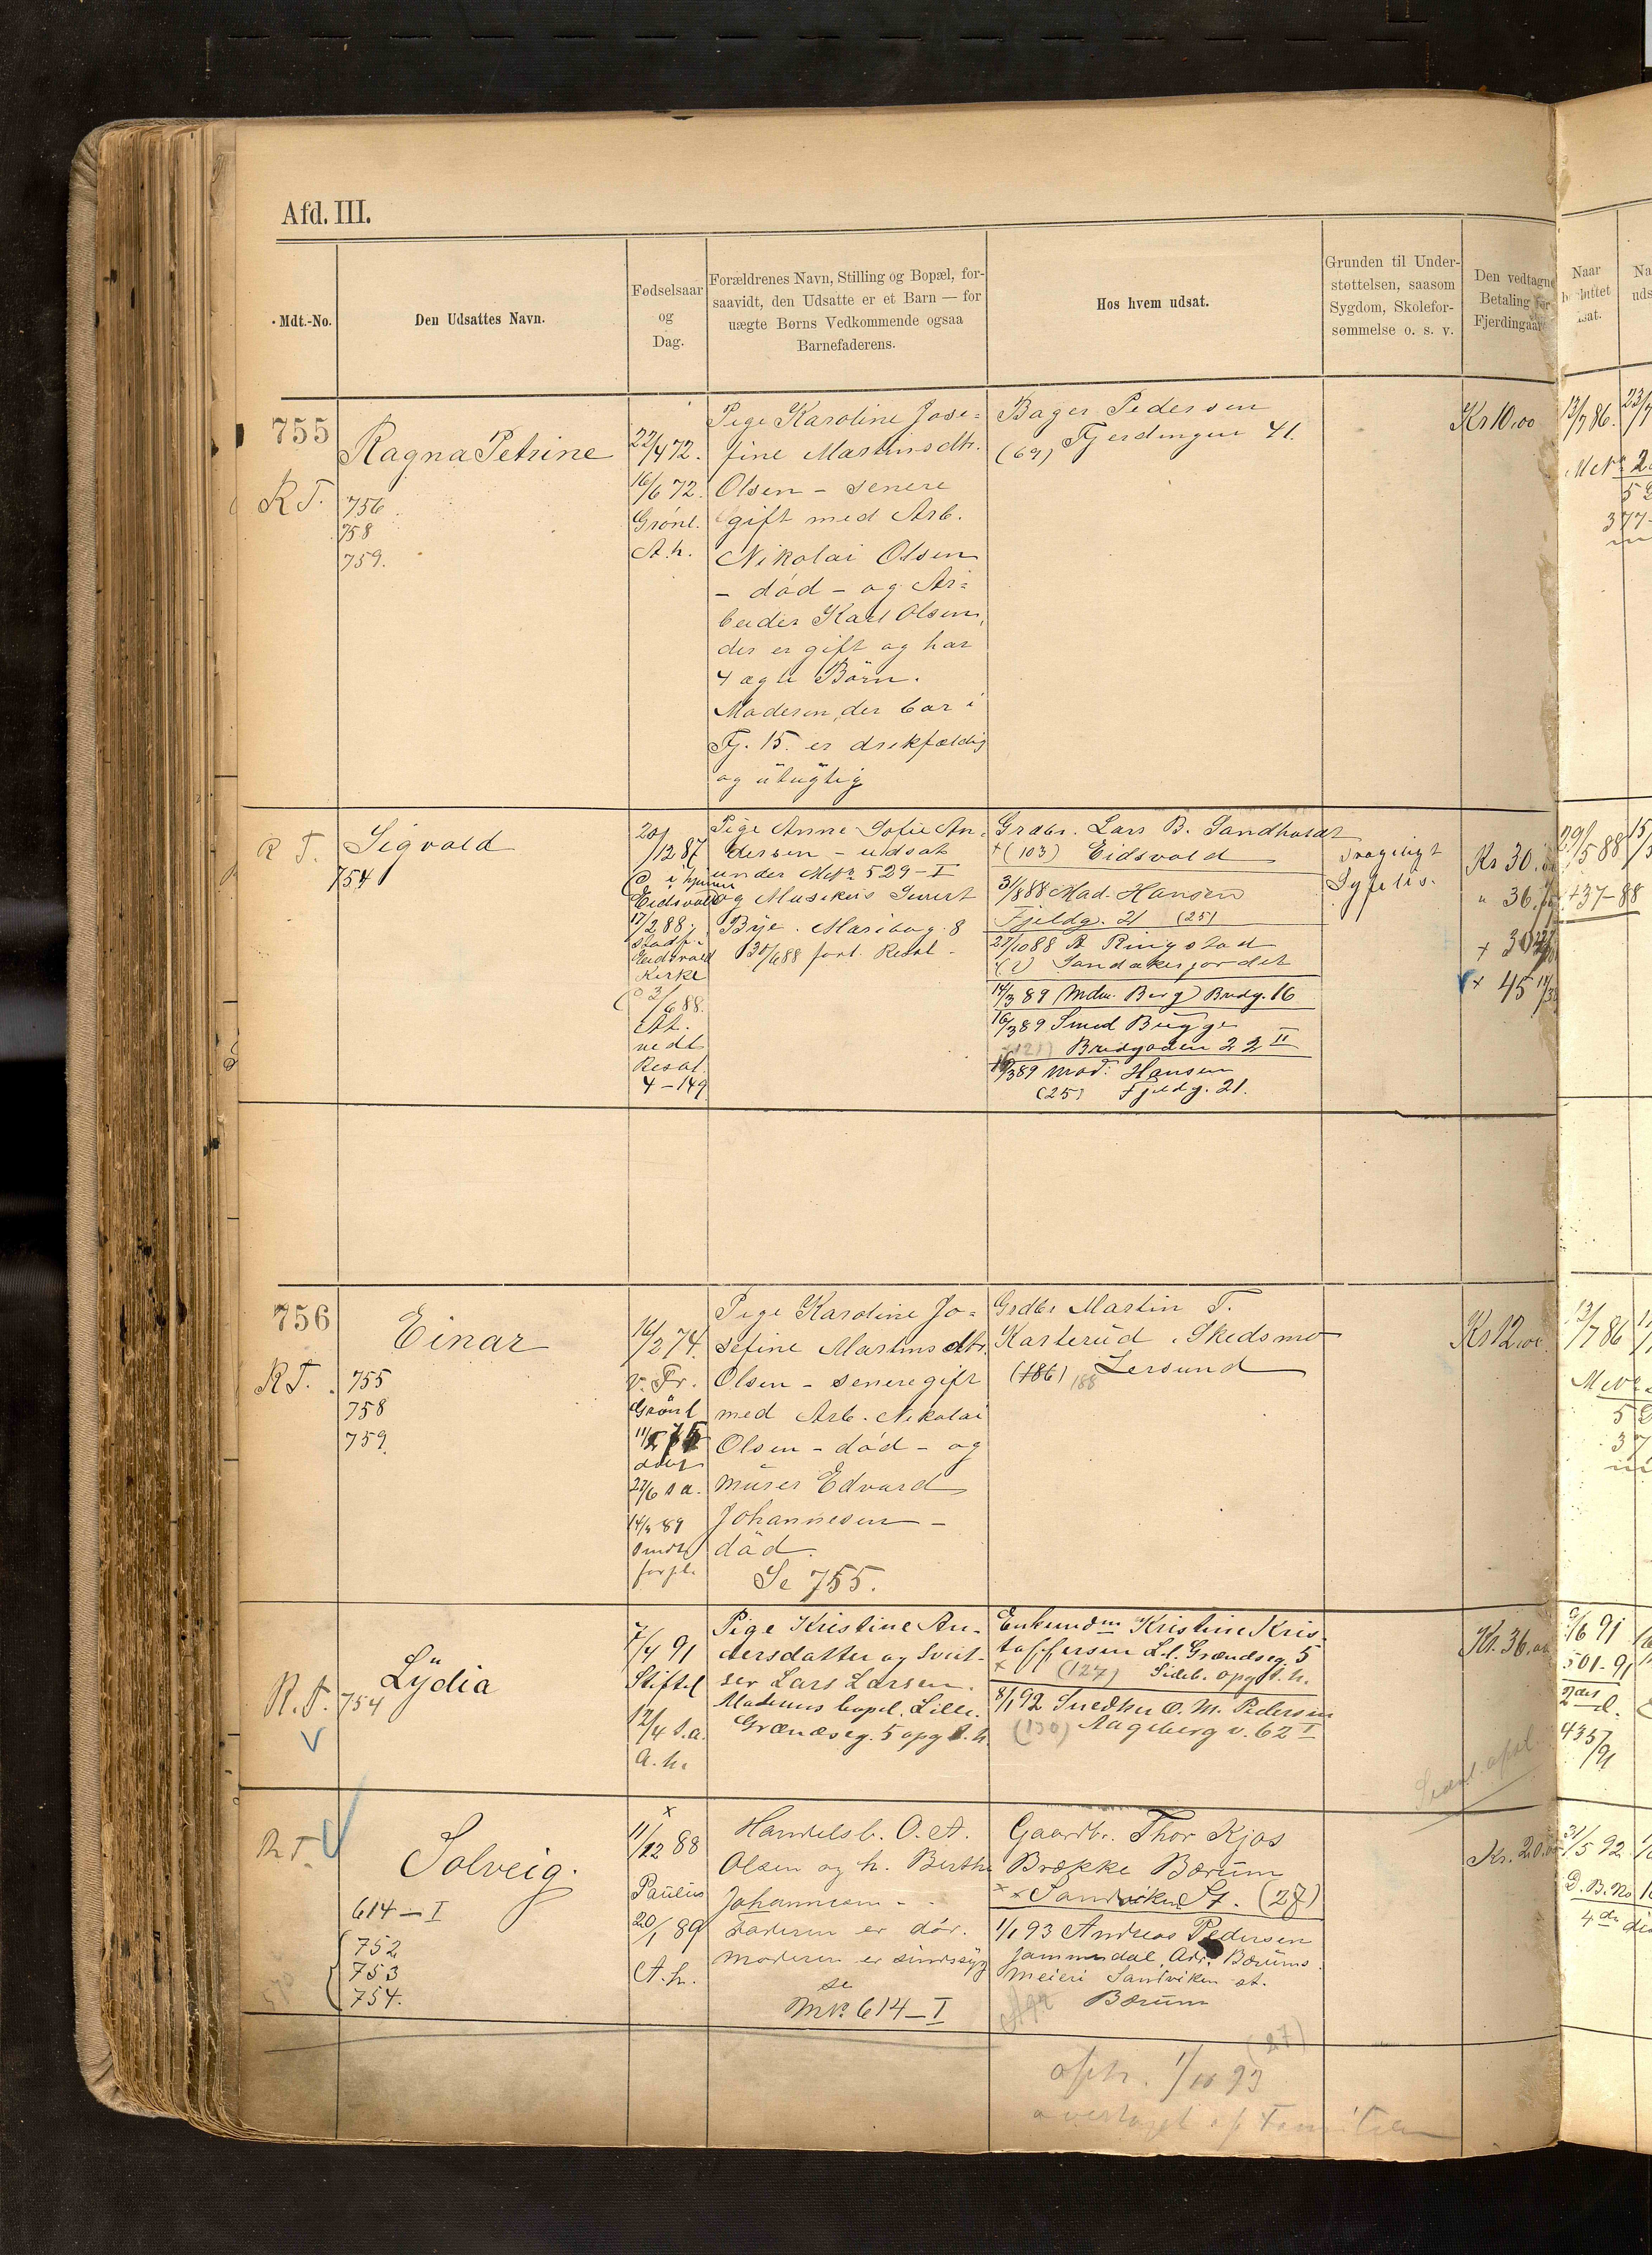 Afd. III.
Mdt.-No.
Den Udsattes Navn.
Fødselsaar
og
Dag.
Forældrenes Navn, Stilling og Bopæl, for-
saavidt, den Udsatte er et Barn — for
uægte Børns Vedkommende ogsaa
Barnefaderens.
Hos hvem udsat.
Grunden til Under-
støttelsen, saasom
Sygdom, Skolefor-
sømmelse o. s. v.
Den vedtagne
Betaling for
Fjerdingaar
Naar
755
R T.
Ragna Petrine
756
758
759.
22/4 72.
16/6 72.
Grönl.
A. h.
Pige Karoline Jose-
fine Martinsdtr.
Olsen - senere
gift med Arb.
Nikolai Olsen
- död - og Ar-
beider Karl Olsen,
der er gift og har
4 ægte Börn.
Moderen, der bor i
Fj. 15. er drikfældig
og utugtig
Bager Pedersen
(69) Fjerdingen 41.
Kr 10,00
13/7 86.
R T.
Sigvald
754
20/12 87
i hjemmet
Eidsvold
17/2 88.
Eidsvold
Kirke
3/6 88.
Resol.
4-149
Pige Anne Sofie An-
dersen - udsat
under Mtr 529-I
og Musikus Sivert
Bye. Maribog. 8
30/6 88 fort. Resol.
Grdbr. Lars B. Sandholdt
+ (103) Eidsvold
31/8 88 Mad. Hansen
Fjeldg. 21 (25)
27/10 88 Ringstad
Sandakerjordet
14/3 89 Mdm. Berg Brudg. 16
16/3 89 Smed Bugge
(121) Bredgaden 22 II
/3 89 Mad. Hansen
(25) Fjeldg. 21.
Syfilis.
Kr 30.
" 36.
+ 30
+ 45
29/5 88
+37-88
756
R T.
Einar
755
758
759.
16/2 74.
v. Fr.
Grönl
27/6 s a.
14/3 89
forpl.
Pige Karoline Jo-
sefine Martinsdtr.
Olsen - senere gift
med Arb. Nikolai
Olsen - död - og
murer Edvard
Johannesen -
död.
Se 755.
Grdbr Martin T.
Karterud, Skedsmo
(186) 188 Lersund
Kr 12,00.
13/7 86
R. T.
Lydia
754
7/4 91
Stiftel
12/4 s.a.
A. h.
Pige Kristine An-
dersdatter og Svert-
ser Lars Larsen.
Moderens bopel. Lille.
Grændseg. 5 opg t. h.
Enkemdm Kristine Kris-
toffersen Ll. Grændseg. 5
+ (127) Sideb. opg t. h.
8/1 92 Snedker O. M. Pedersen
(130) Aageberg v. 62 I
Kr. 36,00
/6 91
501-91
435/91
R T.
Solveig.
614-I
752
753
754.
11/12 88
Paulus
20/1 89
A. h.
Handelsb. O. A.
Olsen og h. Berthe
Johannesen
Faderen er död.
Moderen er sindssyg
se
Mtr 614-I
Gaardbr. Thor Kjos
Brække Bærum
Sandviken St. (27)
1/1 93 Andreas Pedersen
Jammerdal, Adr. Bærums
Meieri Sandviken st.
Bærum
(27)
Kr. 20.00
31/5 92
D. B. No
oph. 1/10 93
overtaget af Familien